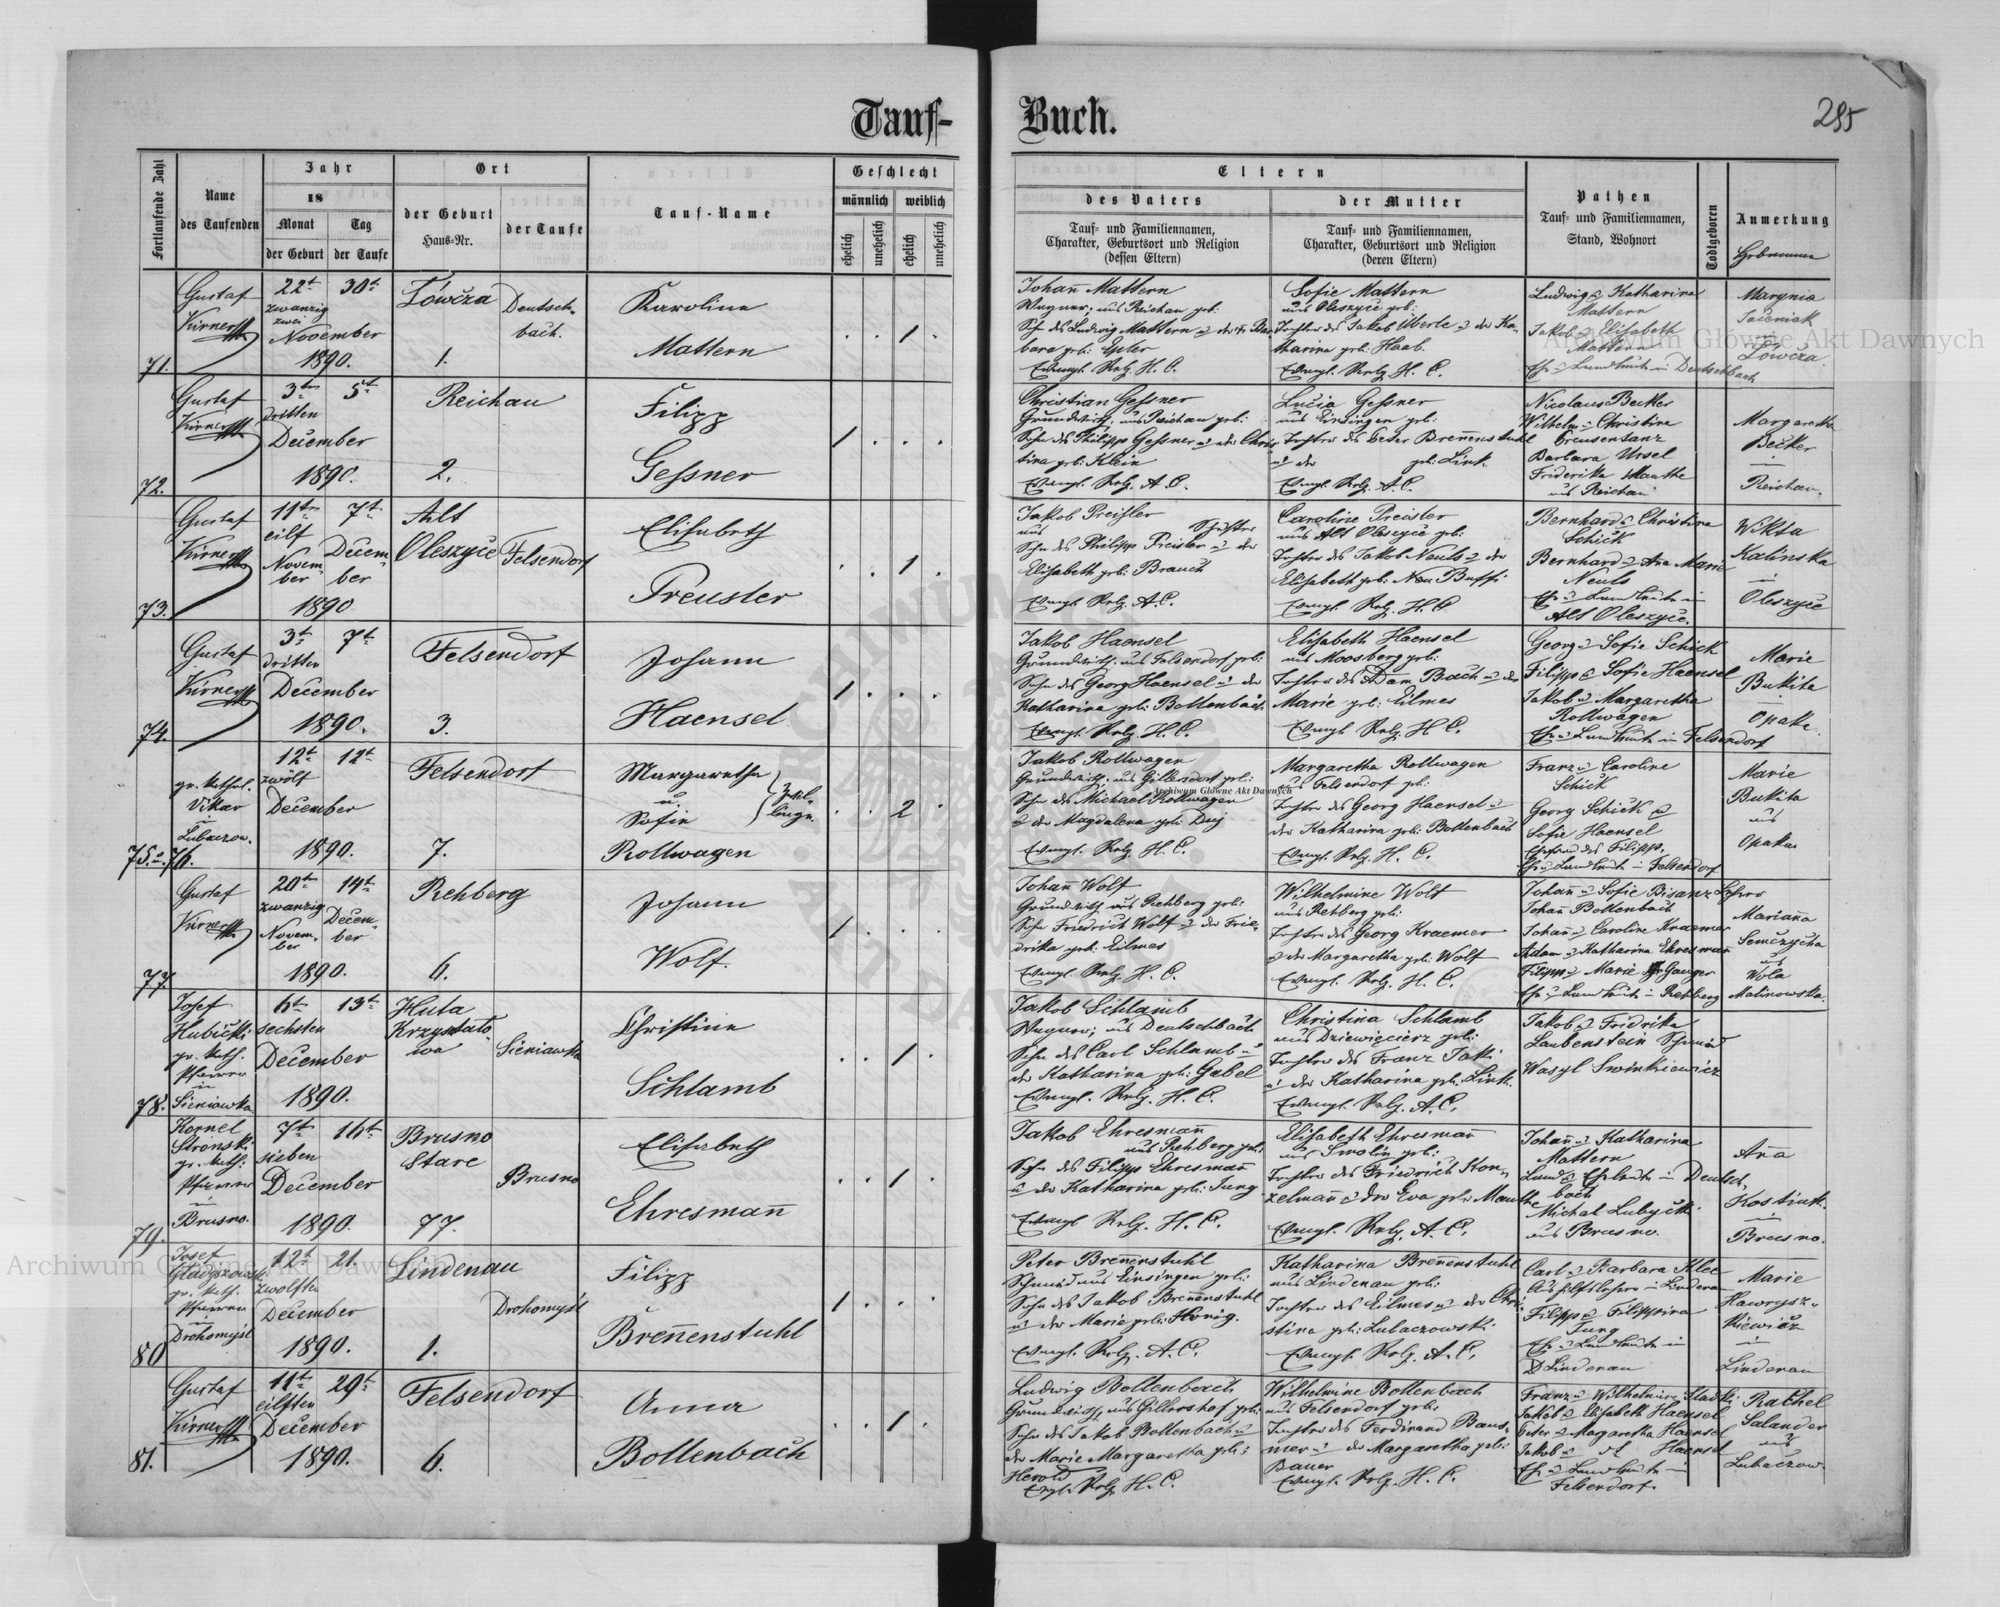 Tauf-
Buch.
295
Fortlaufende Zahl
Name
des Taufenden
Jahr
18
Monat
der Geburt
Tag
der Taufe
Ort
der Geburt
Haus-Nr.
der Taufe
Tauf-Name
Geschlecht
männlich
weiblich
ehelich
unehelich
ehelich
unehelich
Eltern
des Vaters
Tauf- und Familiennamen,
Charakter, Geburtsort und Religion
(dessen Eltern)
der Mutter
Tauf- und Familiennamen,
Charakter, Geburtsort und Religion
(deren Eltern)
Pathen
Tauf- und Familiennamen,
Stand, Wohnort
Todtgeboren
Anmerkung
Hebamme
71.
Gustaf
22t 30t
zwanzig
zwei
November
1890.
Łówcza
1.
Deutsch-
bach.
Karolina
Mattern
. . 1 .
Johann Mattern
Wagner, aus Reichau geb:
Sohn des Ludwig Mattern u der Bar-
bara geb:
Evengl. Relg. H. C.
Sofie Mattern
aus Oleszyce geb:
Tochter des Jakob Überle u der Ka-
tharina geb: Haab.
Evengl. Relg. H. C.
Ludwig u Katharina
Mattern
Jakob u Elisabeth
Mattern
Ehe u Landleute in Deutschbach
Marynia
in
Łówcza
72.
Gustaf
3t 5t
dritten
December
1890.
Reichau
2.
Filipp
Gessner
1 . . .
Christian Gessner
Grundwirth, aus Reichau geb:
Sohn des Philipp Gessner u der Chris-
tina geb: Klein
Evengl. Relg. A. C.
Lucia Gessner
aus Einsingen geb:
Tochter des Peter Brennenstuhl
u der geb: Link.
Evengl. Relg. A. C.
Nicolaus Becker
Wilhelm u Christina
Creusensanz
Barbara Ursel
Friderika Manthe
aus Reichau
Margaretha
Becker
in
Reichau.
73.
Gustaf
11t 7t
eilf
Novem- Decem-
ber ber
1890
Alt
Oleszyce
Felsendorf
Elisabeth
Preusler
. . 1 .
Jakob Preisler
aus Schuster
Sohn des Philipp Preisler u der
Elisabeth geb: Brauch
Evengl. Relg. A. C.
Caroline Preisler
aus Alt Oleszyce geb:
Tochter des Jakob Neuls u der
Elisabeth geb:
Evengl. Relg. H. C.
Bernhard u Christina
Schick
Bernhard u Ana Marie
Neuls
Ehe u Landleute in
Alt Oleszyce.
Wiksa
Kalinska
in
Oleszyce
74.
Gustaf
3t 7t
dritten
December
1890.
Felsendorf
3.
Johann
Haensel
1 . . .
Jakob Haensel
Grundwirth, aus Felsendorf geb:
Sohn des Georg Haensel u der
Katharina geb: Bollenbach
Evengl. Relg. H. C.
Elisabeth Haensel
aus Moosberg geb:
Tochter des Adam Bach u der
Marie geb: Eilmes
Evengl. Relg. H. C.
Georg u Sofie Schick
Filipp u Sofie Haensel
Jakob u Margaretha
Rollwagen
Ehe u Landleute in Felsendorf
Marie
Bukita
Opaka
75. u. 76.
gr. kathol.
Vikar
in
Lubaczow.
12t 12t
zwölf
December
1890.
Felsendorf
7.
Margaretha
u.
Sofie
Zwil-
linge.
Rollwagen
. . 2 .
Jakob Rollwagen
Grundwirth, aus Gillersdorf geb:
Sohn des Michael Rollwagen
u der Magdalena geb:
Evengl. Relg. H. C.
Margaretha Rollwagen
aus Felsendorf geb:
Tochter des Georg Haensel u
der Katharina geb: Bollenbach
Evengl. Relg. H. C.
Franz u Caroline
Schick
Georg Schick u
Sofie Haensel
Ehefrau des Filipp,
Ehe u Landleute in Felsendorf
Marie
Bukita
aus
Opaka
77.
Gustaf
20t 14t
zwanzig
Novem- Decem-
ber ber
1890.
Rehberg
6.
Johann
Wolf.
1 . . .
Johann Wolf
Grundwirth aus Rehberg geb:
Sohn Friedrich Wolf u der Frie-
drika geb: Eilmes
Evengl. Relg. H. C.
Wilhelmine Wolf
aus Rehberg geb:
Tochter des Georg Kraemer
u der Margaretha geb: Wolf
Evengl. Relg. H. C.
Johann u Sofie Bisanz Lehrer
Johann Bollenbach
Johann u Caroline Kraemer
Adam u Katharina Ehresmann
Filipp u Marie Ganger
Ehe u Landleute in Rehberg
Marianna
Semczycha
aus
Wola
Malinowska.
78.
Josef
Kubićki
gr. kath.
Pfarrer
in
Sieniawka
6t 13t
sechsten
December
1890.
Huta
Krzyształo-
wa
Sieniawka
Christine
Schlamb
. . 1 .
Jakob Schlamb
Wagner, aus Deutschbach
Sohn des Carl Schlamb u
der Katharina geb: Gabel
Evengl. Relg. H. C.
Christina Schlamb
aus Dziewięcierz geb:
Tochter des Franz Jaki
u der Katharina geb: Link
Evengl. Relg. A. C.
Jakob u Fridrika
Laubenstein Schmid
Wasyl Swinkiewicz
79.
Kornel
Stronski
gr. kath:
Pfarrer
in
Brusno.
7t 16t
sieben
December
1890.
Brusno
Stare
77.
Brusno
Elisabeth
Ehresmann
. . 1 .
Jakob Ehresmann
aus Rehberg geb:
Sohn des Filipp Ehresmann
u der Katharina geb: Jung
Evengl. Relg. H. C.
Elisabeth Ehresmann
aus Smolin geb:
Tochter des Friedrich Kon-
zelmann u der Eva geb: Manthe
Evengl. Relg. A. C.
Johann u Katharina
Mattern
Land u Eheleute in Deutsch-
bach
Michal Lubyćki
aus Brusno.
Anna
Kostiuk
in
Brusno.
80
Josef
Gładyszowski
gr. kath.
Pfarrer
in
Drohomyśl
12t 21.
zwolften
December
1890.
Lindenau
1.
Drohomyśl
Filipp
Brennenstuhl
1 . . .
Peter Brennenstuhl
Schmied aus Einsingen geb:
Sohn des Jakob Brennenstuhl
u der Marie geb: Honig.
Evengl. Relg. A. C.
Katharina Brennenstuhl
aus Lindenau geb:
Tochter des Eilmes u der Chri-
stina geb: Lubaczowski
Evengl. Relg. A. C.
Carl u Barbara Klee
Aushilfslehrer in Lindenau
Filipp u Filippina
Jung
Ehe u Landleute in
Lindenau
Marie
Hawrysz-
kiewicz
in
Lindenau
81.
Gustaf
11t 29t
eilften
December
1890.
Felsendorf
6.
Anna
Bollenbach
. . 1 .
Ludwig Bollenbach
Grundwirth aus Gillershof geb:
Sohn des Jakob Bollenbach u
der Marie Margaretha geb:
Herold
Evgl. Relg. H. C.
Wilhelmine Bollenbach
aus Felsendorf geb:
Tochter des Ferdinand Baus-
mer u der Margaretha geb:
Bauer
Evengl. Relg. H. C.
Franz u Wilhelmine
Jakob u Elisabeth Haensel
Peter u Margaretha Haensel
Jakob u Haensel
Ehe u Landleute in
Felsendorf.
Rachel
Salander
aus
Lubaczow.
Archiwum Główne Akt Dawnych
Archiwum Główne Akt Dawnych
Archiwum Główne Akt Dawnych